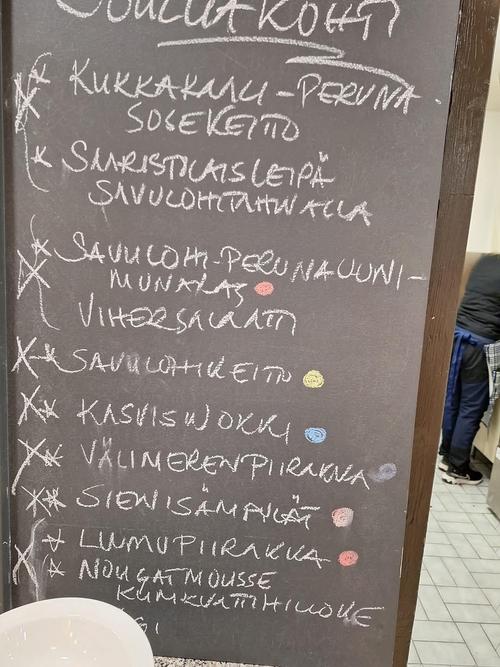 * KUKKAKAALI-PERUNA
SOSEKEITTO
* SAARISTOLAISLEIPÄ
SAVULOHITAHNALLA
* SAVULOHI-PERUNAUUNI-
MUNAKAS
VIHERSALAATTI
X* SAVULOHIKEITTO
X* KASVISWOKKI
X* VÄLIMERENPIIRAKKA
X* SIENISÄMPYLÄT
* LUUMUPIIRAKKA
* NOUGATMOUSSE
KUMKVATTIHILLOKE